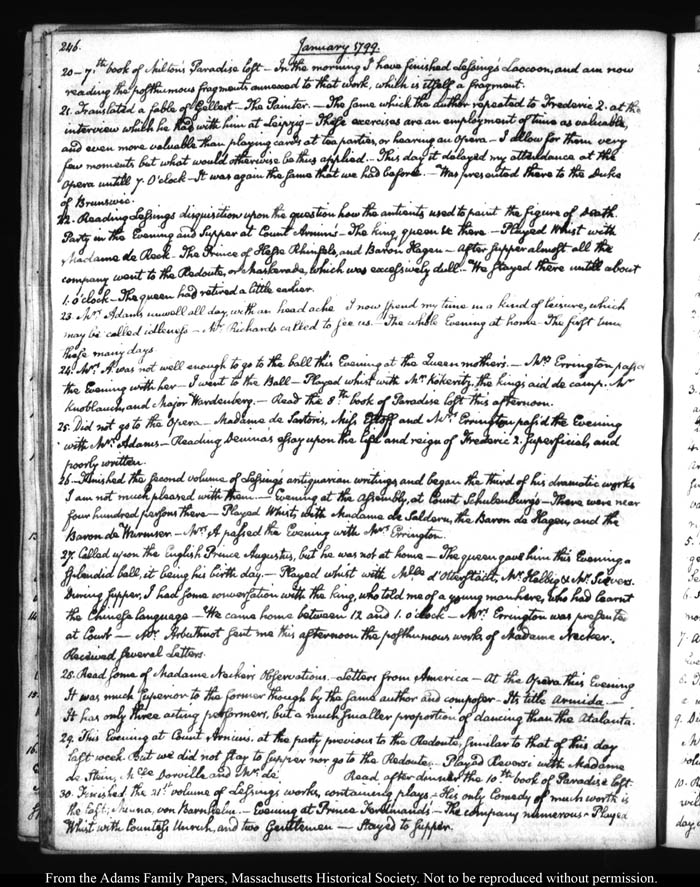 246.
January 1799.
20 - 7.th book of Milton's Paradise lost - In the morning I have finished Lessing's Laocoon, and am now
reading the posthumous fragments annexed to that work, which is itself a fragment.
21. Translated a fable of Gellert - The Painter. - The same which the author repeated to Frederic 2. at the
interview which he had with him at Leipzig - These exercises are an employment of time as valuable,
and even more valuable than playing cards at tea parties, or hearing an Opera - I allow for them very
few moments but what would otherwise be thus applied. - This day it delayed my attendance at the
Opera untill 7. O'clock - It was again the same that we had before - Was presented there to the Duke
of Brunswic.
22. Reading Lessings disquisition upon the question how the antients used to paint the figure of Death.
Party in the Evening and Supper at Count Arnim's - The king queen &c there - Played Whist with
Madame de Reck - The Prince of Hesse Rhinfels, and Baron Hagen - After supper almost all the
company went to the Redoute, or Maskerade, which was excessively dull - We stayed there untill about
1. o'clock - The queen had retired a little earlier.
23. Mrs. Adams unwell all day, with an head ache I now spend my time in a kind of leisure, which
may be called idleness - Mr. Richards called to see us. - The whole Evening at home - The first time
these many days.
24. Mrs. A was not well enough to go to the ball this Evening at the Queen mother's. - Mrs. Errington pass'd
the Evening with her - I went to the Ball - Played whist with Mr Kökeritz, the kings aid de camp. Mr
Knoblauch, and Major Wardenberg. - Read the 8.th book of Paradise lost this afternoon.
25. Did not go to the Opera - Madame de Sartoris, Miss and Mrs. Errington pass'd the Evening
with Mrs. Adams - Reading Deninas essay upon the life and reign of Frederic 2. superficial, and
poorly written.
26. Finished the second volume of Lessings antiquarian writings, and began the third of his dramatic works
I am not much pleased with them. - Evening at the Assembly, at Count Schulenburg's - There were near
four hundred persons there - Played Whist, with Madame de Saldern, the Baron de Hagen, and the
Baron de Wurmser - Mrs. A passed the Evening with Mrs. Errington.
27. Called upon the English Prince Augustus, but he was not at home - The queen gave him this Evening a
splendid ball, it being his birth day. - Played whist with Mlle. d'Otterstadt, Mr. Helbig & Mr. Sievers.
During supper, I had some conversation with the king, who told me of a young man here, who had learnt
the Chinese language - We came home between 12 and 1. o'clock - Mrs. Errington was presented
at Court - Mr. Arbuthnot sent me this afternoon the posthumous works of Madame Necker.
Received several Letters.
28. Read some of Madame Neckers Observations. - Letters from America - At the Opera this Evening
It was much superior to the former though by the same author and composer - Its title Armida. -
It has only three acting performers, but a much smaller proportion of dancing than the Atalanta.
29. This Evening at Count Arnim's. at the party previous to the Redoute, similar to that of this day
last week. But we did not stay to supper nor go to the Redoute. Played Reverse with Madame
de Stein, Mlle Dorville and Mr. Le Read after dinner the 10.th book of Paradise lost.
30. Finished the 21st volume of Lessings works, containing plays - His only Comedy of much worth is
the last; Minna, von Barnhelm. - Evening at Prince Ferdinand's - The company numerous - Played
Whist with Countess Unruh, and two Gentlemen - Stayed to supper.
From the Adams Family Papers, Massachusetts Historical Society. Not to be reproduced without permission.